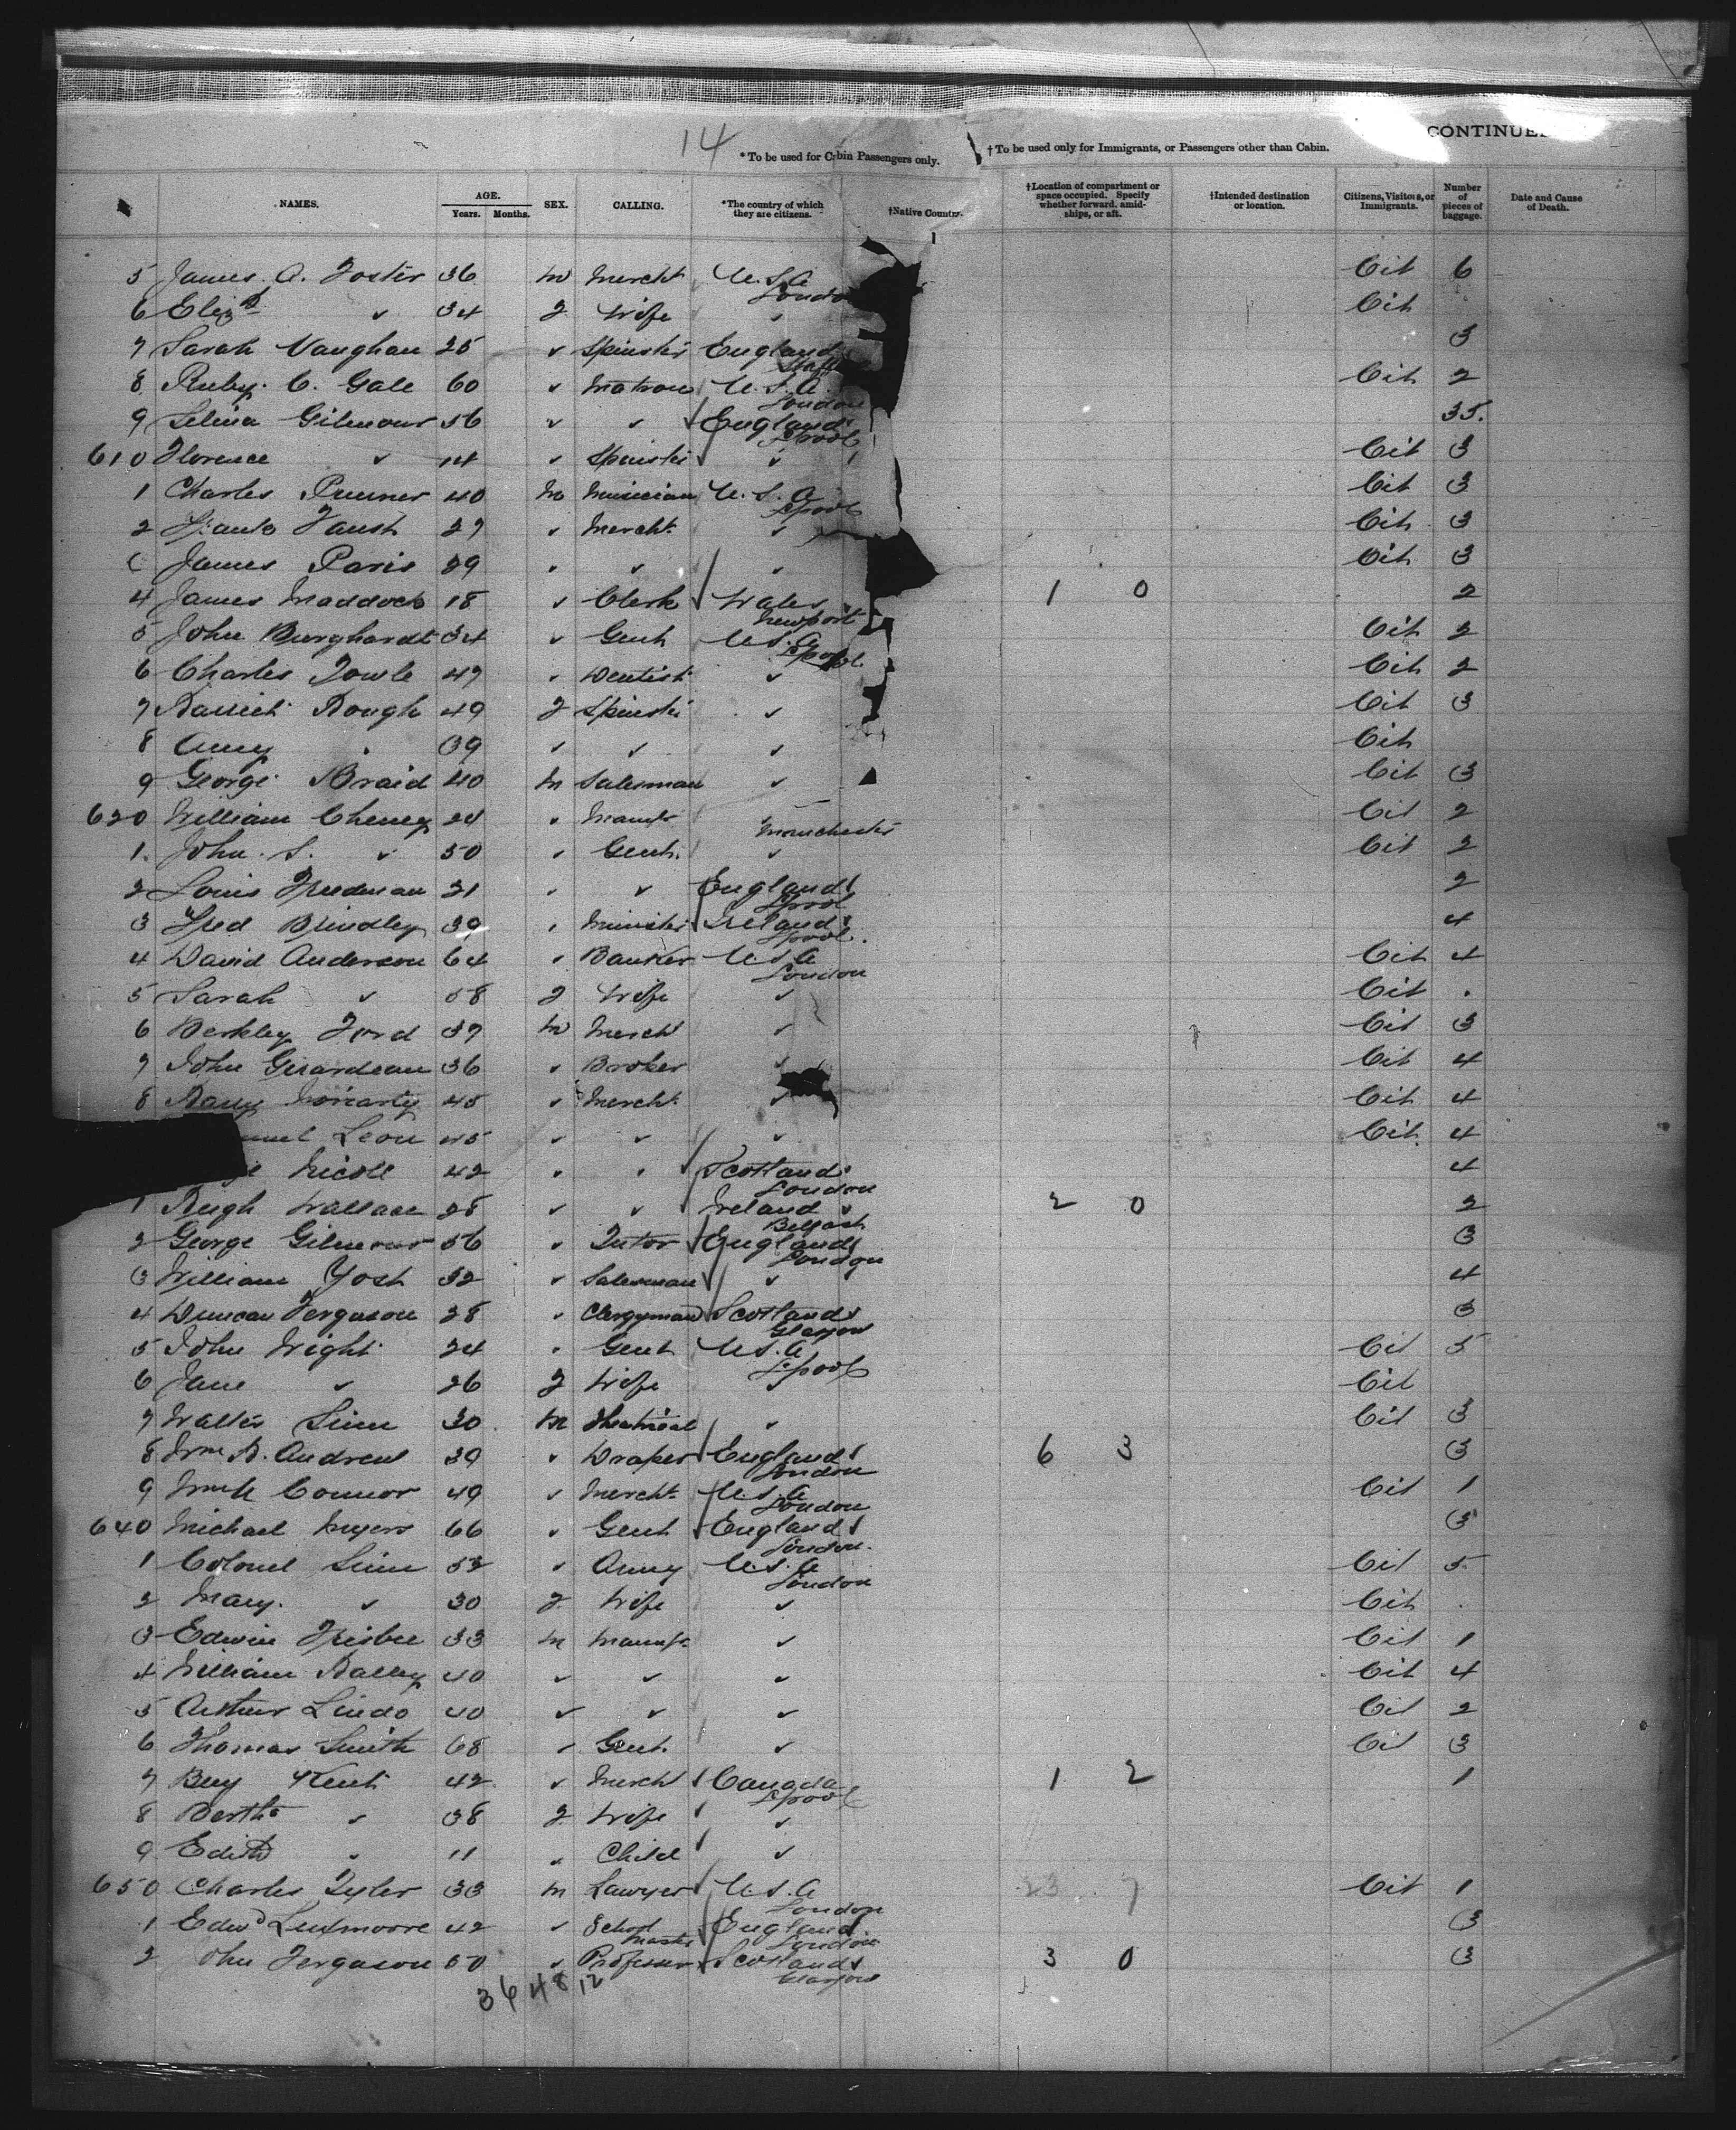 CONTINUED
14
*To be used for Cabin Passengers only. †To be used only for Immigrants, or Passengers other than Cabin.
NAMES. AGE. Years. Months. SEX. CALLING. *The country of which they are citizens. †Native Country. †Location of compartment or space occupied. Specify whether forward, amidships, or aft. †Intended destination or location. Citizens, Visitors, or Immigrants. Number of pieces of baggage. Date and Cause of Death.
5 James. A. Foster 36 m Mercht U.S.A London Cit 6
6 Eliz " 34 f Wife " Cit
7 Sarah Vaughan 25 " Spinster England 3
8 Ruby. C. Gale 60 " Matron U.S.A. London Cit 2
9 Selina Gilmour 56 " " England Lpool 35.
610 Florence " 14 " Spinster " Cit 3
1 Charles 40 m Musician U.S.A Lpool Cit 3
2 Faust 27 " Mercht " Cit 3
James Paris 29 " " " Cit 3
4 James Maddock 18 " Clerk Wales Newport 1 0 2
5 John Burghardt 34 " Gent U.S.A Lpool Cit 2
6 Charles Towle 47 " Dentist " Cit 2
7 Hough 49 f Spinster " Cit 3
8 Amy " 39 " " " Cit
9 George Braid 40 m Salesman " Cit 3
620 William Cheney 24 " Manfr " Manchester Cit 2
1. John. S. " 50 " Gent. " Cit 2
2 Louis Freedman 21 " " England Lpool 2
3 Fred Brindley 39 " Minister Ireland Lpool. 4
4 David Anderson 64 " Banker U.S.A London Cit 4
5 Sarah " 58 f Wife " Cit .
6 Berkley Ford 37 m Mercht " Cit 3
7 John Girardeau 36 " Broker " Cit 4
8 Harry Moriarty 45 " Mercht " Cit 4
Leon 45 " " " Cit. 4
Nicoll 42 " " Scotland London 4
1 Hugh Wallace 28 " " Ireland Belfast 2 0 2
2 George Gilmour 56 " Tutor England London 3
3 William Yost 32 " Salesman " 4
4 Duncan Ferguson 28 " Clergyman Scotland Glasgow 3
5 John Wright 24 " Gent U.S.A Lpool Cit 5
6 Jane " 26 f Wife " Cit
7 Walter Sinn 30 m Theatrical " Cit 3
8 Wm H. Andrew 39 " Draper England London 6 3 3
9 Connor 49 " Mercht U.S.A London Cit 1
640 Michael Myers 66 " Gent England London. 3
1 Colonel Sinn 52 " Army U.S.A London Cit 5
2 Mary. " 30 f Wife " Cit .
3 Edwin Frisbee 33 m Manufr " Cit 1
4 William Halley 40 " " " Cit 4
5 Arthur Lindo 40 " " " Cit 2
6 Thomas Smith 68 " Gent " Cit 3
7 Benj Kent 42 " Mercht Canada Lpool 1 2 1
8 Bertha " 38 f Wife "
9 Edith " 11 " Child "
650 Charles Tyler 33 m Lawyer U.S.A London 23 7 Cit 1
1 Edwd Luxmoore 42 " School Master England London 3
2 John Ferguson 50 " Professor Scotland Glasgow 3 0 3
36 48 12